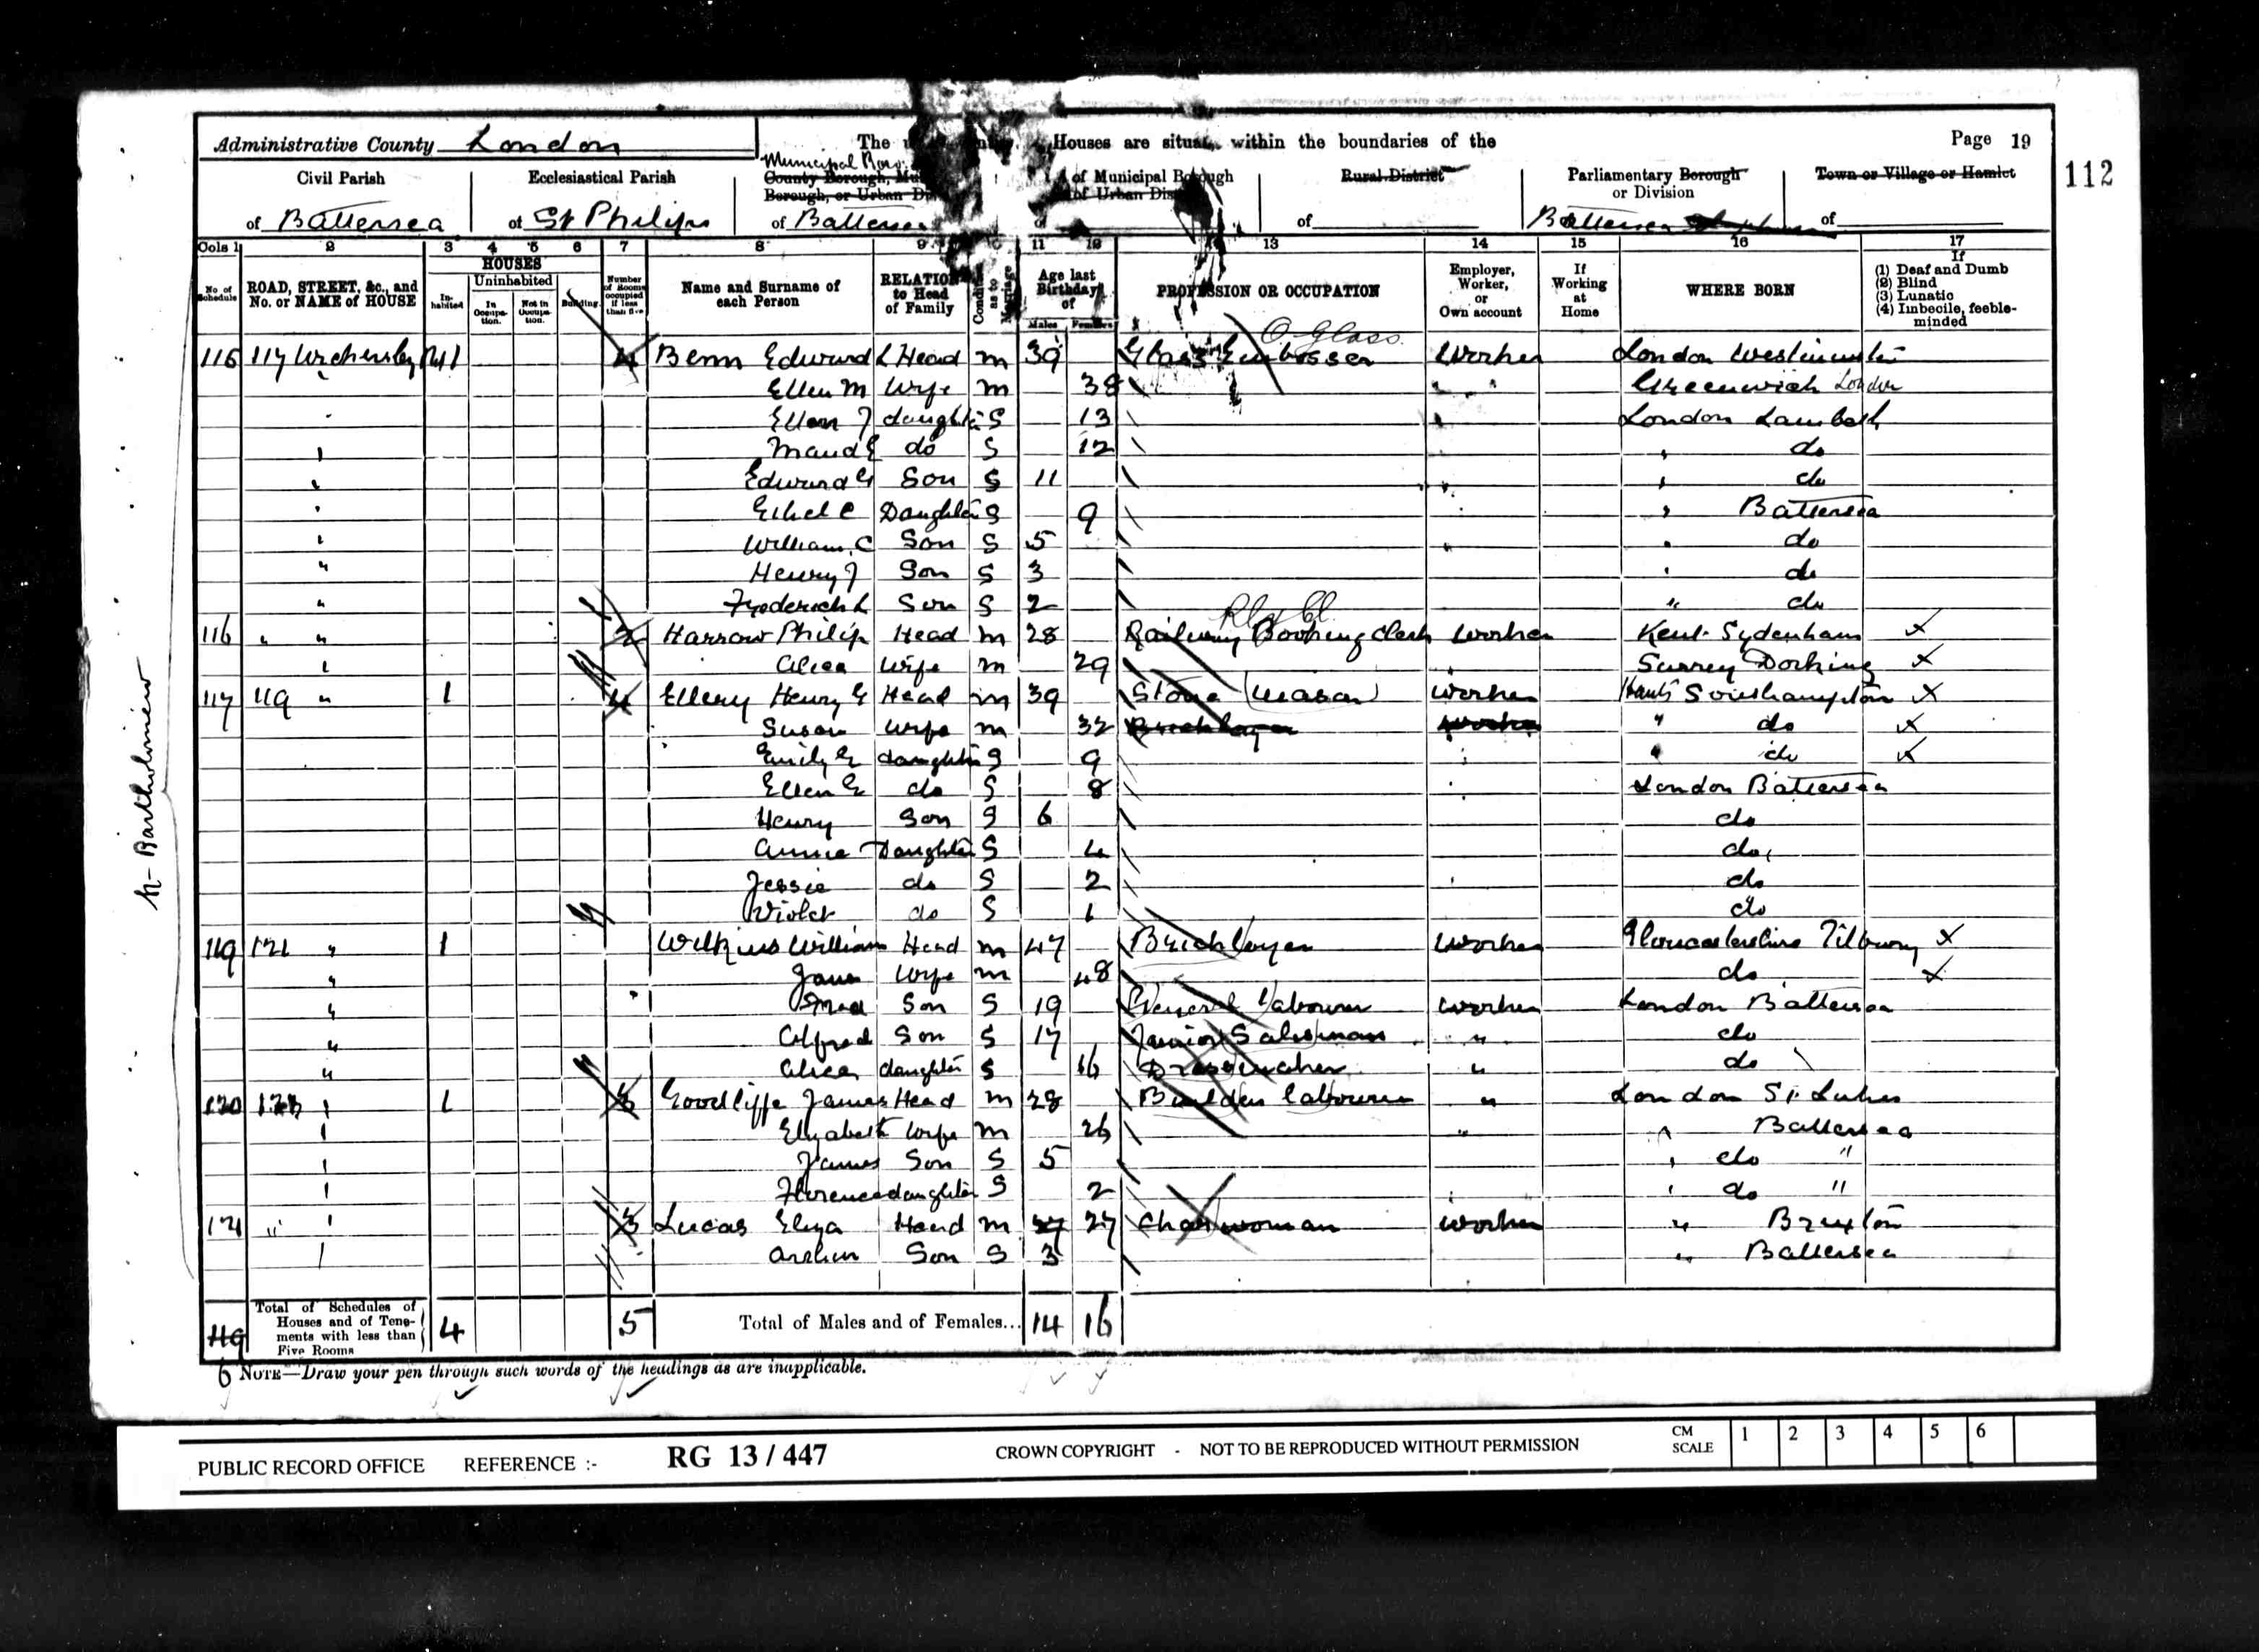 Administrative County London
The Houses are situate within the boundaries of the
Page 19
112
Civil Parish
of Battersea
Ecclesiastical Parish
of St Philips
Municipal Boro.
County Borough, Mu
Borough, or Urban Di
of Battersea
of Municipal Borough
of Urban Dis
of
Rural District
of
Parliamentary Borough
or Division
Battersea
Town or Village or Hamlet
of
Cols 1 2 3 4 5 6 7 8 9 10 11 12 13 14 15 16 17
No. of Schedule
ROAD, STREET, &c., and No. or NAME of HOUSE
HOUSES
Inhabited
Uninhabited
In Occupation.
Not in Occupation.
Building.
Number of Rooms occupied if less than five
Name and Surname of each Person
RELATION to Head of Family
Condition as to Marriage
Age last Birthday of
Males Females
PROFESSION OR OCCUPATION
Employer, Worker, or Own account
If Working at Home
WHERE BORN
If
(1) Deaf and Dumb
(2) Blind
(3) Lunatic
(4) Imbecile, feeble-minded
O Glass
115 117 1 4 Benn Edward L Head m 39 Glass Embosser Worker London Westminster
Ellen M Wife m 38 Greenwich London
Ellen J daughter S 13 London Lambeth
Maud E do S 12 do
Edward G Son S 11 do
Ethel C Daughter S 9 Battersea
William C Son S 5 do
Henry J Son S 3 do
Frederick L Son S 2 " do
Rly Cl
116 " " 2 Harrow Philip Head m 28 Railway Booking Clerk Worker Kent Sydenham x
Alice Wife m 29 Surrey Dorking x
117 119 " 1 4 Ellery Henry G Head m 39 Stone Mason Worker Hants Southampton x
Susan Wife m 32 Bricklayer Worker " do x
Emily E daughter S 9 " do x
Ellen E do S 8 London Battersea
Henry Son S 6 do
Annie Daughter S 4 do
Jessie do S 2 do
Violet do S 1 do
119 121 " 1 Wilkins William Head m 47 Bricklayer Worker Gloucestershire Tilbury x
" Jane Wife m 48 do x
" Fred Son S 19 General Labourer Worker London Battersea
" Alfred Son S 17 Junior Salesman " do
" Alice daughter S 16 Dressmaker " do
120 123 1 3 Goodliffe James Head m 28 Builders Labourer " London St Lukes
Elizabeth Wife m 26 " " Battersea
James Son S 5 do "
Florence daughter S 2 do "
121 " 3 Lucas Eliza Head m 27 27 Charwoman Worker " Brixton
Arthur Son S 3 " Battersea
119
6
Total of Schedules of Houses and of Tenements with less than Five Rooms
4
5
Total of Males and of Females...
14 16
NOTE—Draw your pen through such words of the headings as are inapplicable.
N- Bartholomew
PUBLIC RECORD OFFICE REFERENCE :- RG 13 / 447 CROWN COPYRIGHT - NOT TO BE REPRODUCED WITHOUT PERMISSION
CM SCALE 1 2 3 4 5 6